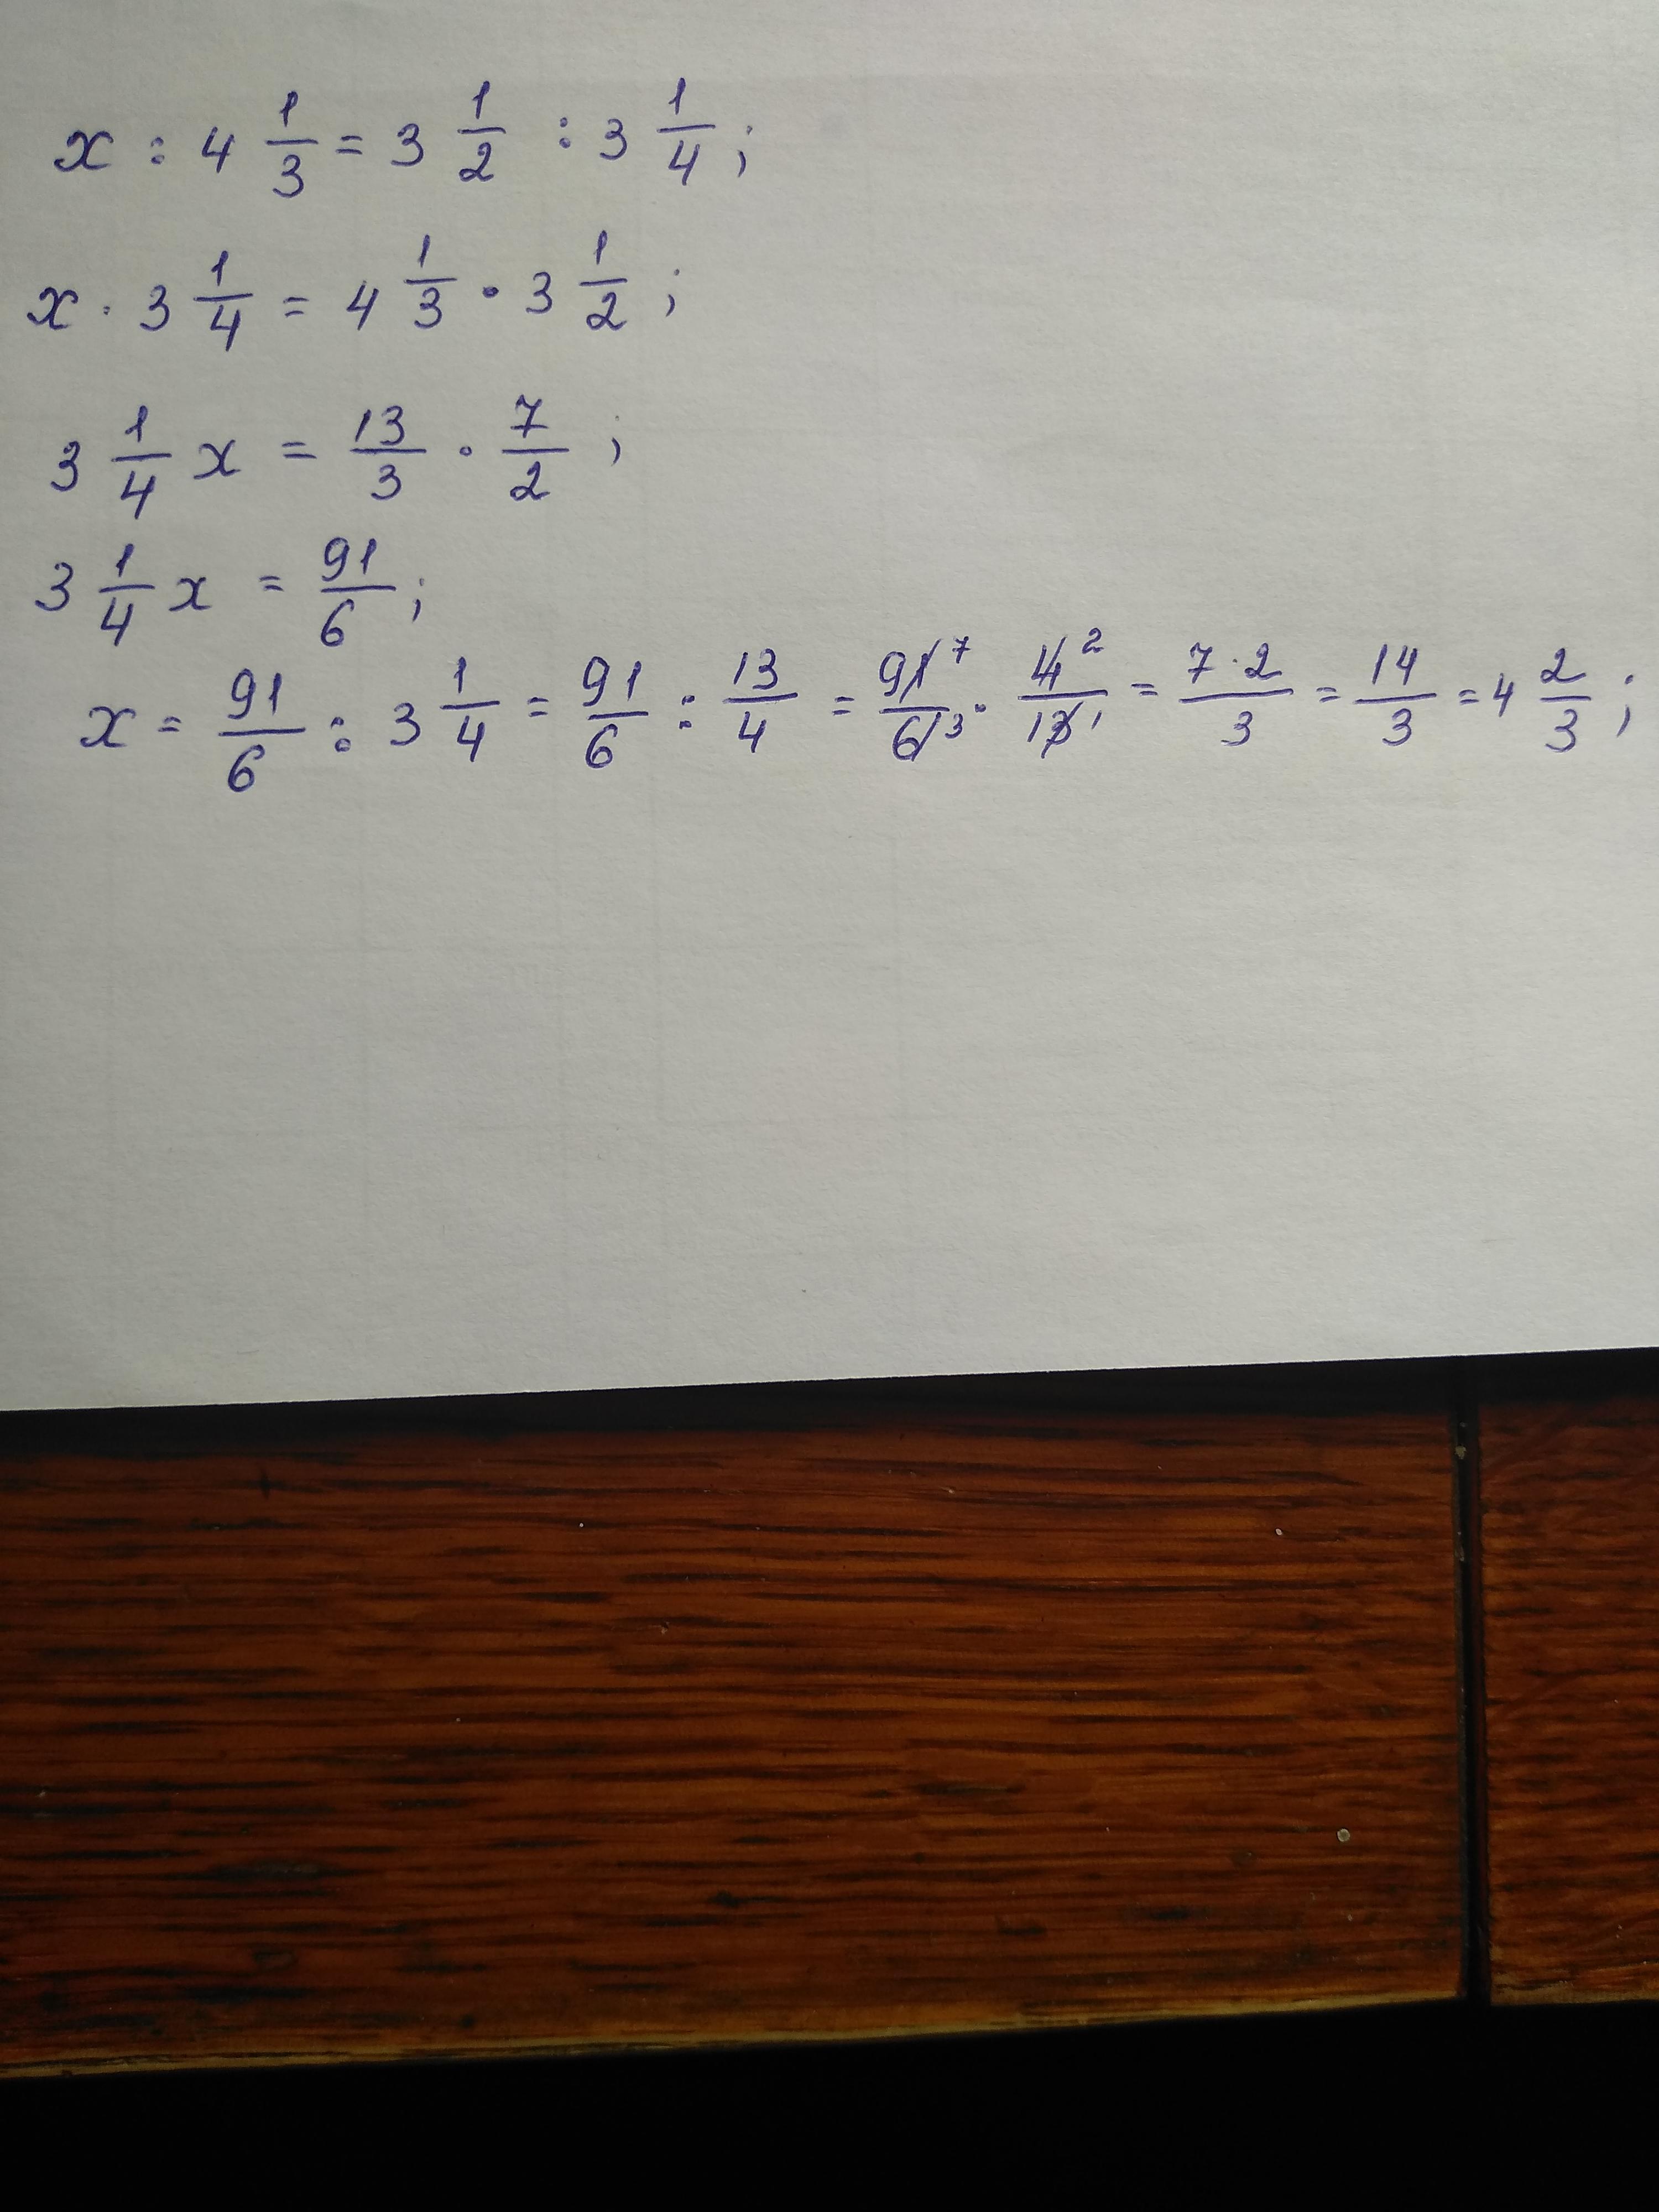 x : 4 1/3 = 3 1/2 : 3 1/4 ;
x · 3 1/4 = 4 1/3 · 3 1/2 ;
3 1/4 x = 13/3 · 7/2 ;
3 1/4 x = 91/6 ;
x = 91/6 : 3 1/4 = 91/6 : 13/4 = 91 7/6 3 · 4 2/13 1 = 7·2/3 = 14/3 = 4 2/3 ;